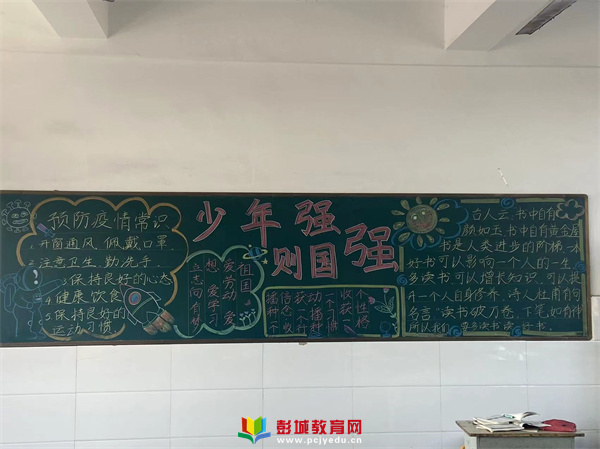 预防疫情常识
1.开窗通风,佩戴口罩
2.注意卫生,勤洗手
3.保持良好的心态
4.健康饮食
5.保持良好的
运动习惯
少年强
则国强
祖国,爱
爱劳动
想,爱学习
立志向有梦
播信动一个收个
种念一播习获性
一获行种惯一格
个收
古人云,书中自有
颜如玉,书中自有黄金屋
书是人类进步的阶梯,一本
好书可以影响一个人的一生
多读书可以增长知识,可以提
升一个人自身修养,诗人杜甫有句
名言“读书破万卷,下笔如有神
所以我们要多读书
彭城教育网
www.pcjyedu.cn